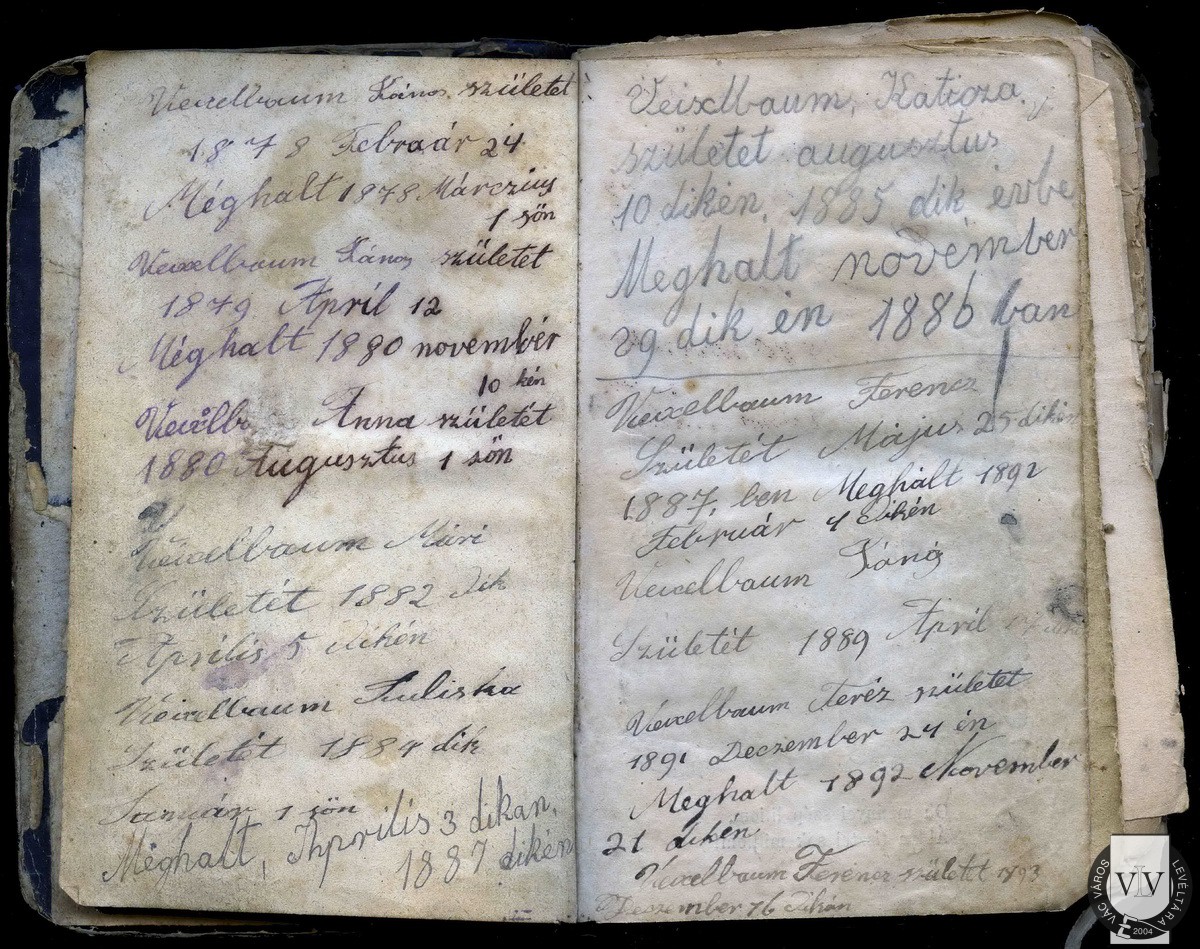 Veixelbaum János született
1878 Február 24
Méghalt 1878 Márczius
1 sön
Veixelbaum János születet
1879 April 12
Méghalt 1880 novembér
10 kén
Anna születét
1880 Augusztus 1 sön
Veixelbaum Mari
Születét 1882 dik
Április 5 dikén
Veixelbaum Juliska
Születét 1884 dik
Január 1 sön
Méghalt, Április 3 dikan,
1887 dikén
Veixelbaum, Katicza
születet augusztus
10 dikén, 1885 dik évbe
Meghalt november
29 dik én 1886 ban
Veixelbaum Ferencz
Születét Május 25 dikén
1887, ben Meghalt 1892
Február 4 dikén
Veixelbaum János
Születét 1889 April
Veixelbaum Teréz születet
1891 Deczember 24 én
Meghalt 1892 November
21 dikén
Veixelbaum Ferencz születet 1893
Deczember 16 dikán
VÁC VÁROS LEVÉLTÁRA
2004